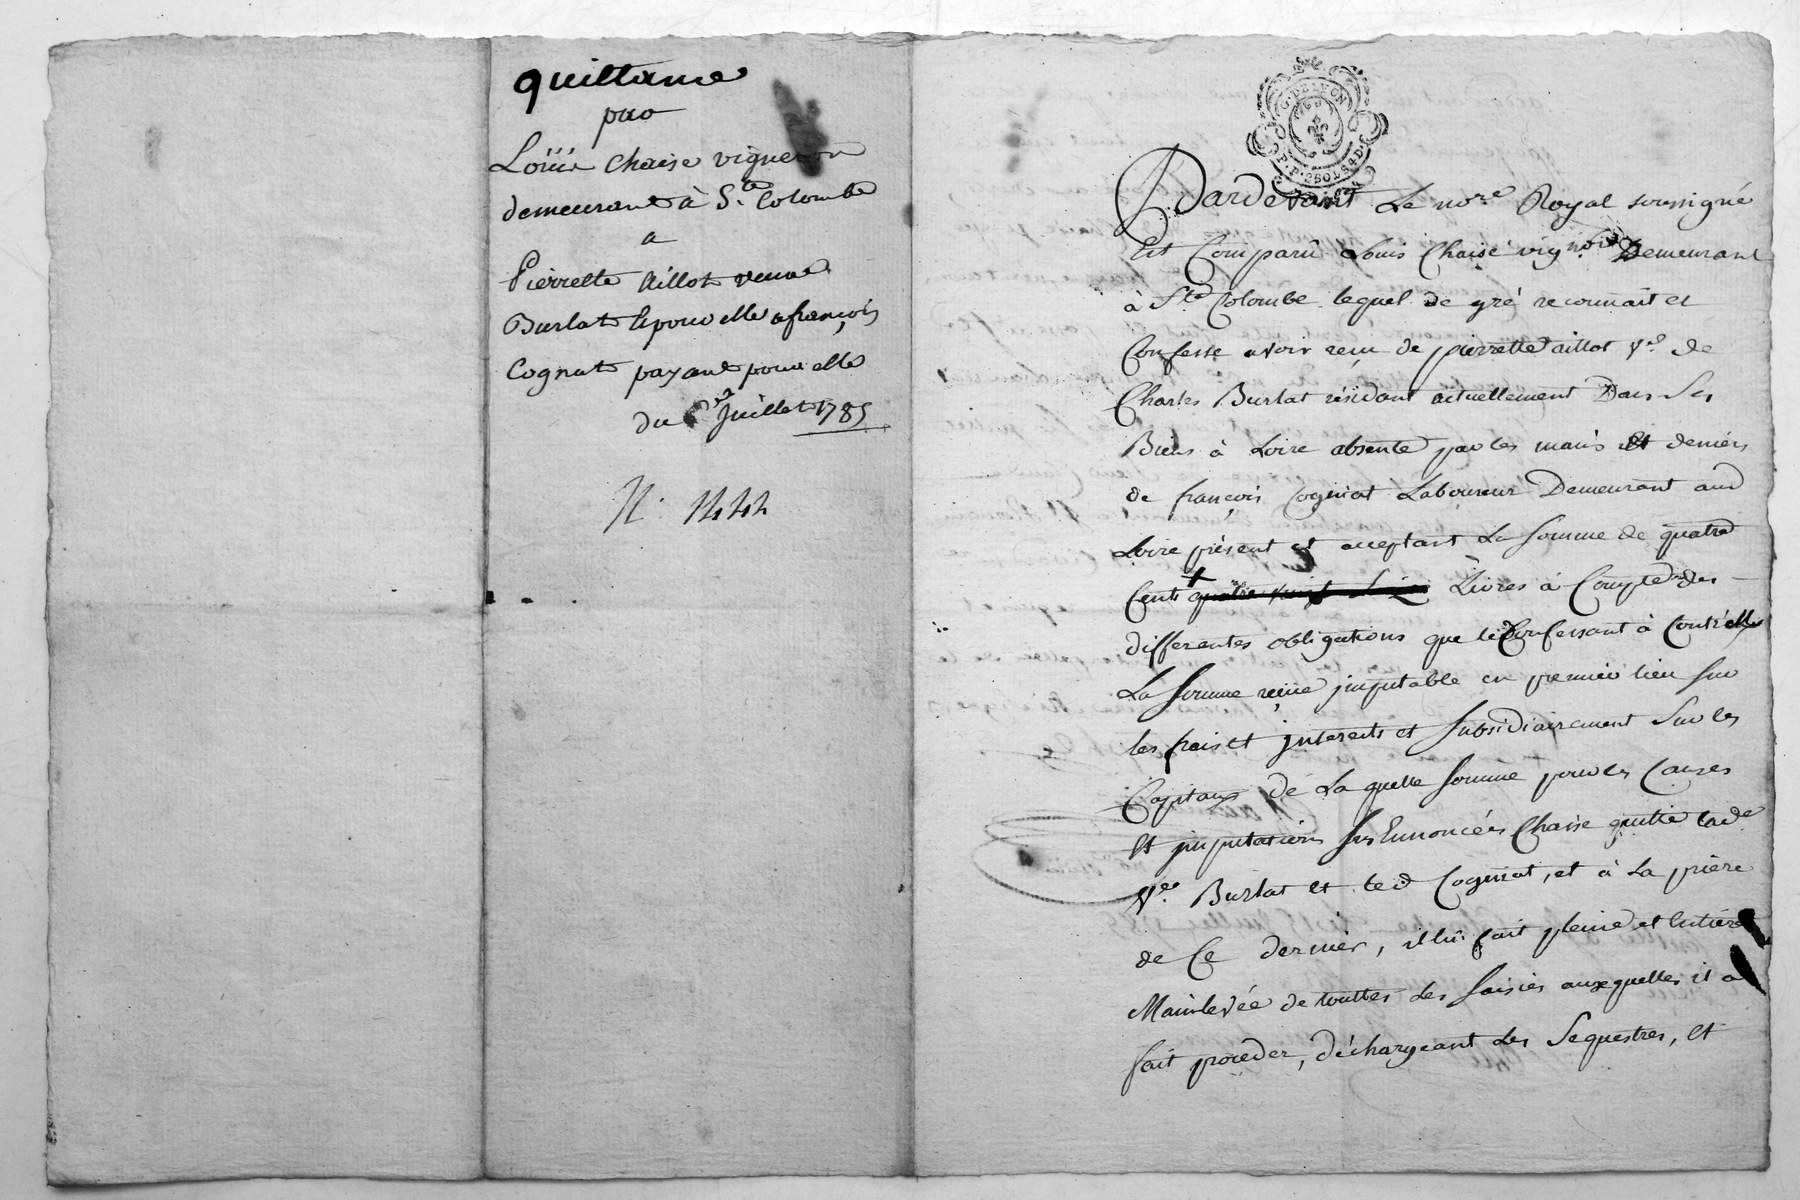 quittance
par
Loüis Chaise vigneron
demeurant à Ste. Colombe
a
Pierrette Aillot veuve
Burlat le pour elle a françois
Cognat payant pour elle
du juillet 1785
N.
G. DE LYON
P. P. 2 SOLS 4 D.
Pardevant Le nore. Royal soussigné
Est Comparû Louis Chaise Demeurant
à Ste. Colombe lequel de gré reconnait et
Confesse avoir reçu de pierrette aillot Ve. de
Charles Burlat résidant actuellement Dans Ses
Biens à Loire absente par les mains et deniers
de françois Cognat Laboureur Demeurant aud
Loire présent et acceptant La somme de quatre
Cents Livres à Compte des
differentes obligations que le Confessant à Contr'elle
La somme reçue jmputable en premier lieu sur
les frais et jnterets et subsidiairement Sur les
Capitaux de La quelle somme pour les Causes
Et jmputations sus Ennoncées Chaise quitte lade
Ve. Burlat et led Cognat, et à La prière
de Ce dernier, il lui fait pleine et Entière
Mainlevée de touttes Les saisies auxquelles il a
fait proceder, déchargeant Les Sequestres, Et